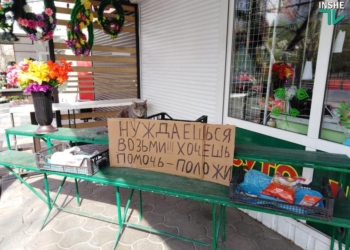 INSHE
НУЖДАЕШЬСЯ
ВОЗЬМИ!!! ХОЧЕШЬ
ПОМОЧЬ – ПОЛОЖИ